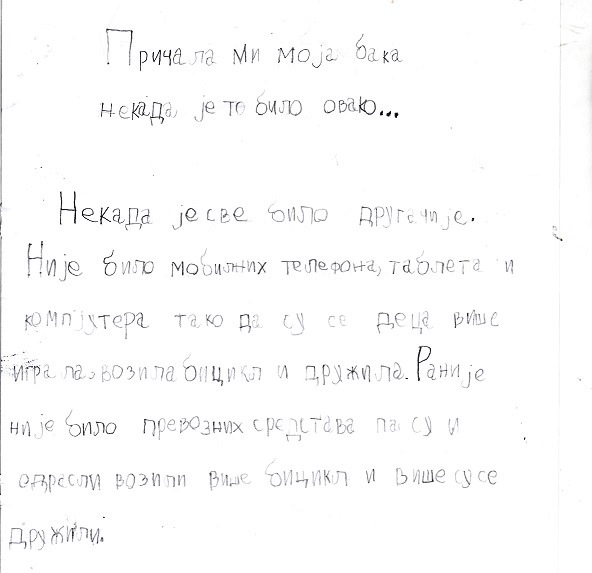 Причала ми моја бака
некада је то било овако...
Некада је све било другачије.
Није било мобилних телефона, таблета и
компјутера тако да су се деца више
играла, возила бицикл и дружила. Раније
није било превозних средстава па су и
одрасли возили више бицикл и више су се
дружили.